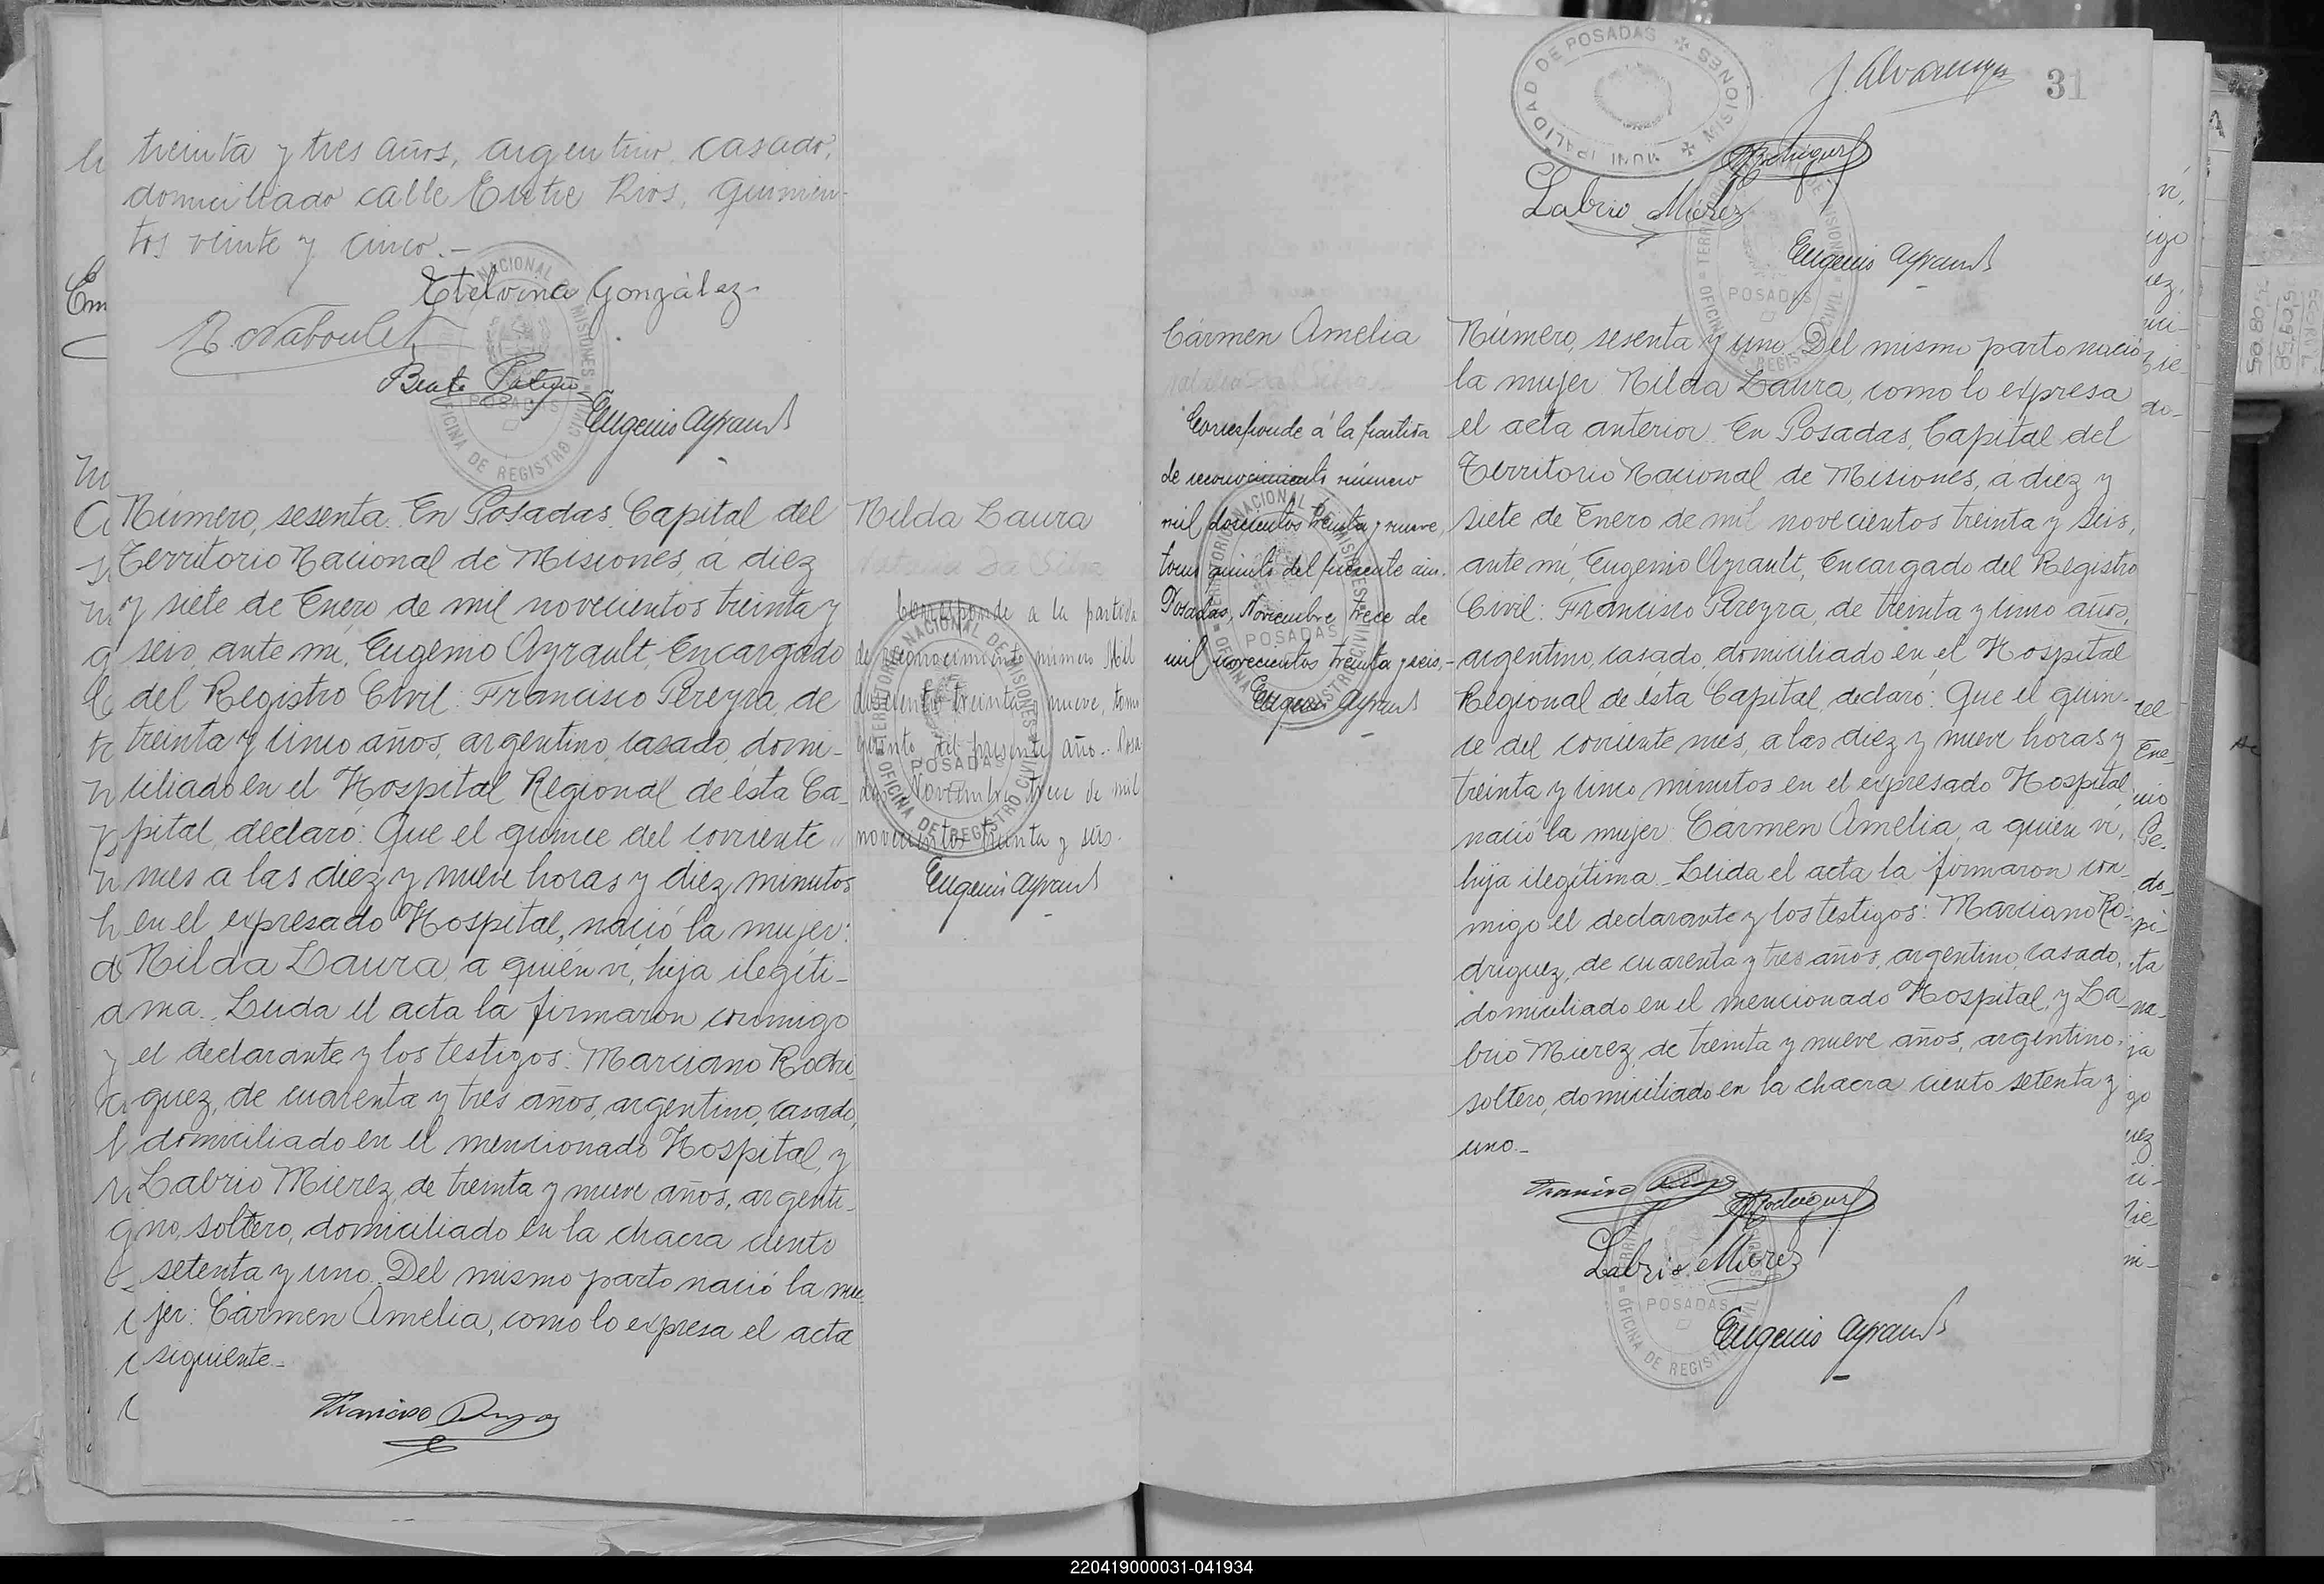 treinta y tres años, argentino, casado,
domiciliado calle Entre Rios, quinien-
tos veinte y cinco.-
Etelvina González-
Eugenio Ayrault
Número, sesenta. En Posadas, Capital del
Territorio Nacional de Misiones, a diez
y siete de Enero de mil novecientos treinta y
seis, ante mí, Eugenio Ayrault, Encargado
del Registro Civil: Francisco Pereyra, de
treinta y cinco años, argentino, casado, domi-
ciliado en el Hospital Regional de ésta Ca-
pital, declaró: Que el quince del corriente
mes a las diez y nueve horas y diez minutos
en el expresado Hospital, nació la mujer:
Nilda Laura, a quién ví, hija ilegíti-
ma. Leida el acta la firmaron conmigo
el declarante y los testigos: Marciano Rodri-
guez, de cuarenta y tres años, argentino, casado,
domiciliado en el mencionado Hospital, y
Labrio Mierez, de treinta y nueve años, argenti-
no, soltero, domiciliado en la chacra ciento
setenta y uno. Del mismo parto nació la mu-
jer: Cármen Amelia, como lo expresa el acta
siguiente.-
Nilda Laura
Corresponde a la partida
de reconocimiento número Mil
doscientos treinta y nueve, tomo
quinto del presente año.- Posa-
das, Noviembre trece de mil
novecientos treinta y seis.
Eugenio Ayrault
NACIONAL DE MISIONES
POSADAS
OFICINA DE REGISTRO CIVIL
J. Alvarenga
31
MUNICIPALIDAD DE POSADAS
MISIONES
Rodriguez
Labrio Mierez
Eugenio Ayrault
Cármen Amelia
Corresponde á la partida
de reconocimiento número
mil doscientos treinta y nueve,
tomo quinto del presente año.
Posadas, Noviembre trece de
mil novecientos treinta y seis.-
Eugenio Ayrault
Número, sesenta y uno. Del mismo parto nació
la mujer Nilda Laura, como lo expresa
el acta anterior. En Posadas, Capital del
Territorio Nacional de Misiones, a diez y
siete de Enero de mil novecientos treinta y seis,
ante mí, Eugenio Ayrault, Encargado del Registro
Civil: Francisco Pereyra, de treinta y cinco años,
argentino, casado, domiciliado en el Hospital
Regional de ésta Capital, declaró: Que el quin-
ce del corriente mes, a las diez y nueve horas y
treinta y cinco minutos en el expresado Hospital,
nació la mujer: Cármen Amelia, a quién ví,
hija ilegítima.- Leida el acta la firmaron con-
migo el declarante y los testigos: Marciano Ro-
driguez, de cuarenta y tres años, argentino, casado,
domiciliado en el mencionado Hospital, y La-
brio Mierez, de treinta y nueve años, argentino,
soltero, domiciliado en la chacra ciento setenta y
uno.-
Rodriguez
Labrio Mierez
Eugenio Ayrault
220419000031-041934